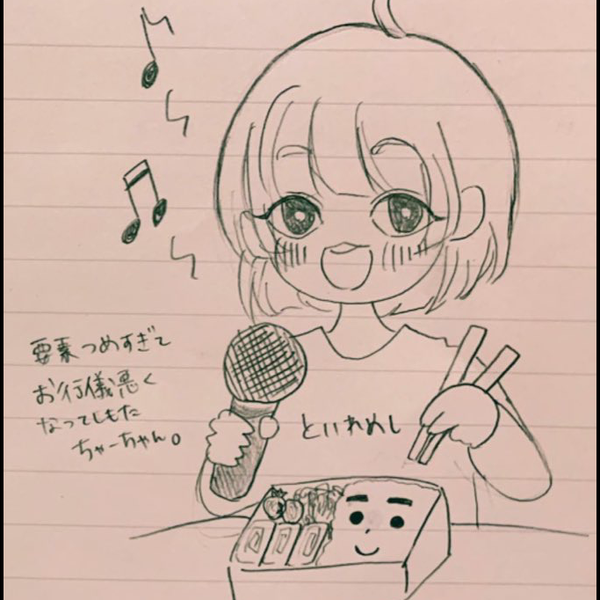 要素つめすぎて
お行儀悪く
なってしもた
ちゃーちゃん。
といれめし